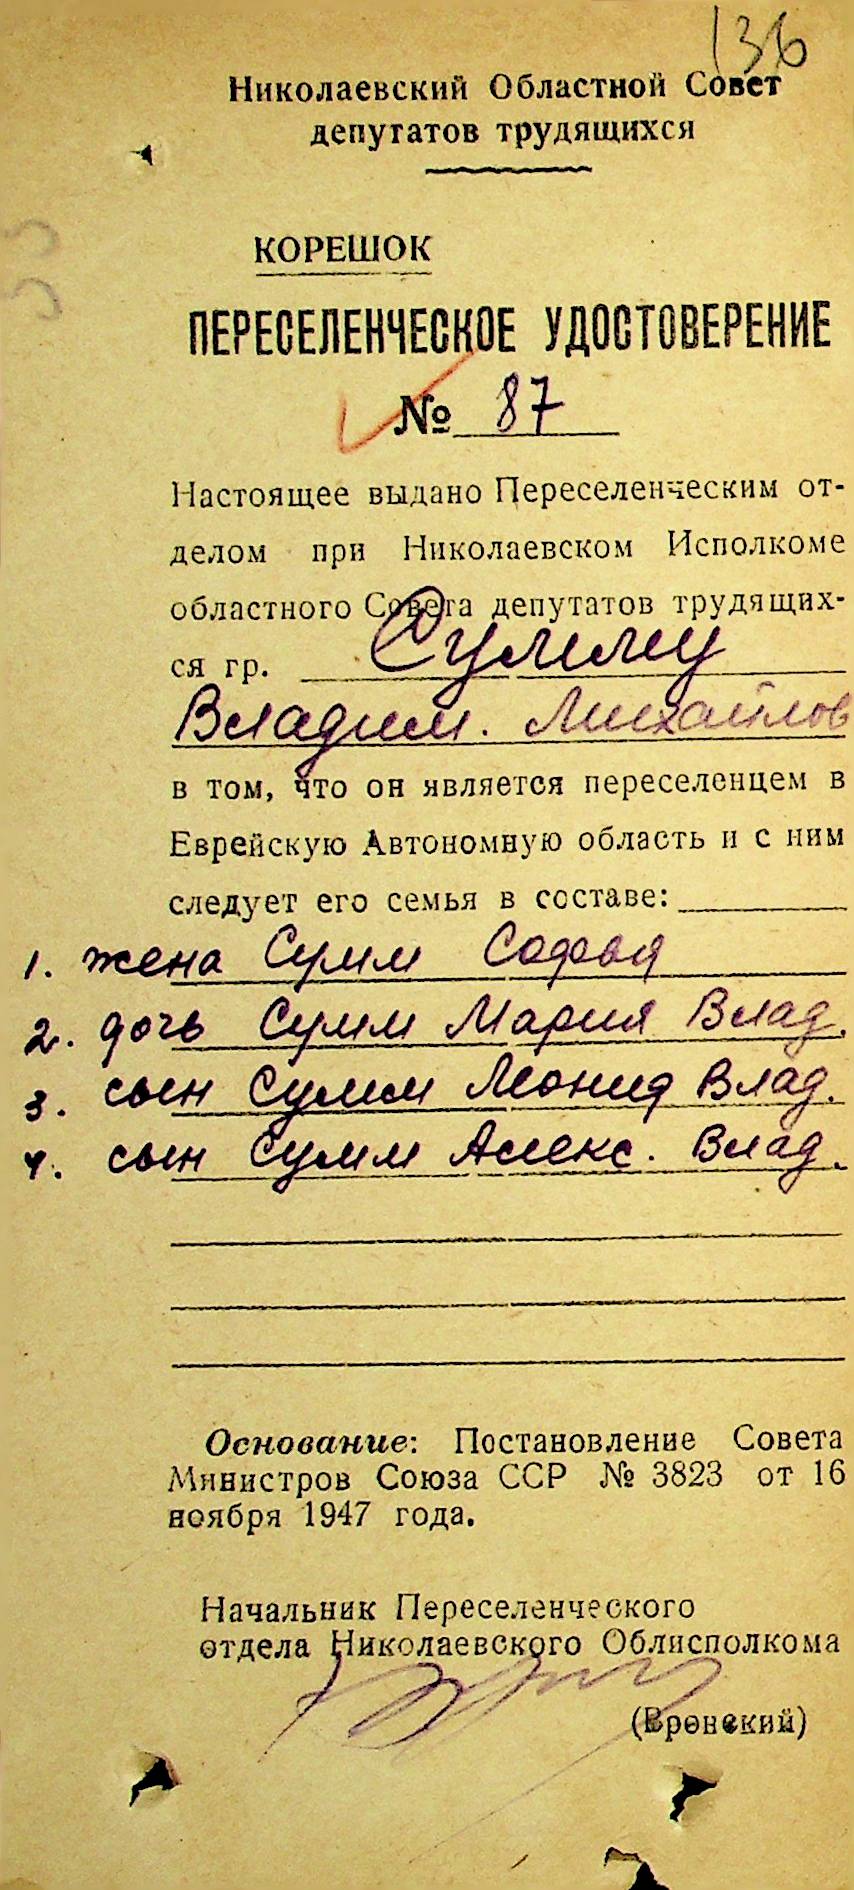 136
Николаевский Областной Совет
депутатов трудящихся
КОРЕШОК
ПЕРЕСЕЛЕНЧЕСКОЕ УДОСТОВЕРЕНИЕ
№ 87
Настоящее выдано Переселенческим от-
делом при Николаевском Исполкоме
областного Совета депутатов трудящих-
ся гр. Сумму
Владим. Михайлов
в том, что он является переселенцем в
Еврейскую Автономную область и с ним
следует его семья в составе:
1. жена Сумм Софья
2. дочь Сумм Мария Влад.
3. сын Сумм Леонид Влад.
4. сын Сумм Алекс. Влад.
Основание: Постановление Совета
Министров Союза ССР № 3823 от 16
ноября 1947 года.
Начальник Переселенческого
отдела Николаевского Облисполкома
(Вронский)